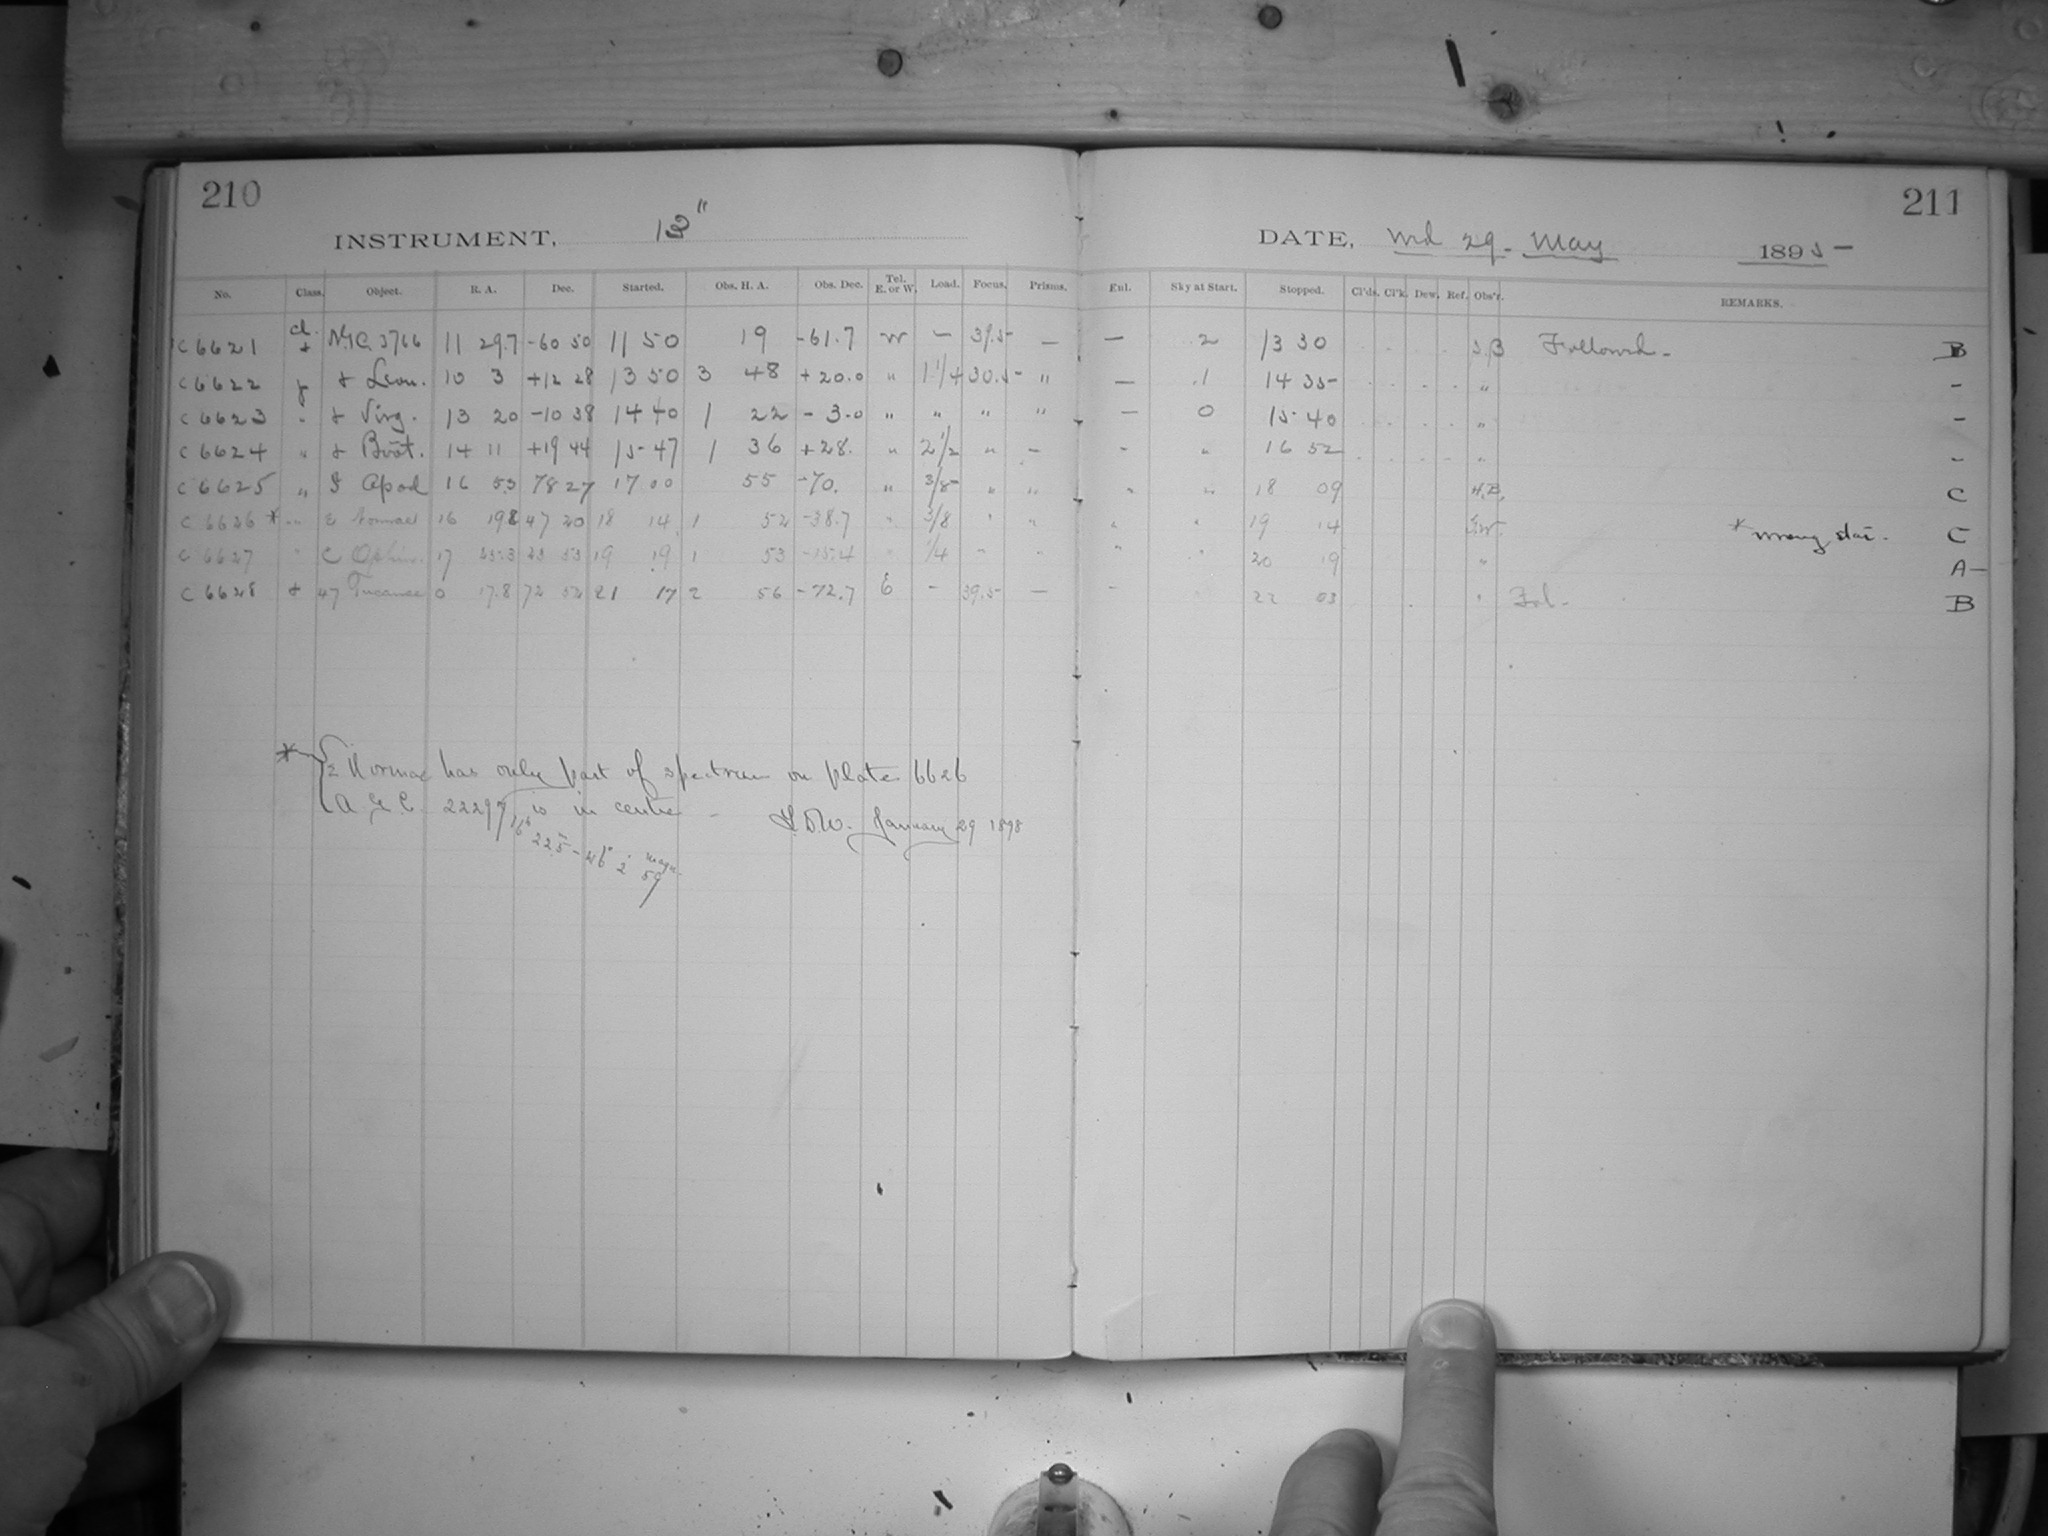 210
211
INSTRUMENT, 13"
DATE, Wd 29. May 1895-
No. Class. Object. R. A. Dec. Started. Obs. H. A. Obs. Dec. Tel. E. or W. Load. Focus. Prisms. Eul. Sky at Start. Stopped. Cl'ds. Cl'k. Dew. Ref. Obs'r. REMARKS.
C 6621 cl. + N.G.C. 3766 11 29.7 -60 50 11 50 19 -61.7 W - 39.5 - - 2 13 30 S.B Followed - B
C 6622 Leon. 10 3 +12 28 13 50 3 48 +20.0 " 1 1/4 30.5 " - 1 14 35 " -
C 6623 " Virg. 13 20 -10 38 14 40 1 22 - 3.0 " " " " - 0 15 40 " -
C 6624 " Boöt. 14 11 +19 44 15 47 1 36 +28. " 2 1/2 " - - " 16 52 " -
C 6625 " Apod 16 53 78 27 17 00 55 -70. " 3/8 " " " " 18 09 H.B. C
C 6626 * " ε Normae 16 19.8 47 20 18 14 1 52 -38.7 " 3/8 " " " " 19 14 * wrong star. C
C 6627 " C Ophiu. 17 23 53 19 19 1 53 -15.4 " 1/4 " " " 20 19 " A-
C 6628 + 47 Tucanae 0 17.8 72 52 21 17 2 56 -72.7 E - 39.5 - - " 22 03 " Fol. B
* ε Normae has only part of spectrum on plate 6626
A.G.C. 22297 is in centre - January 29 1898